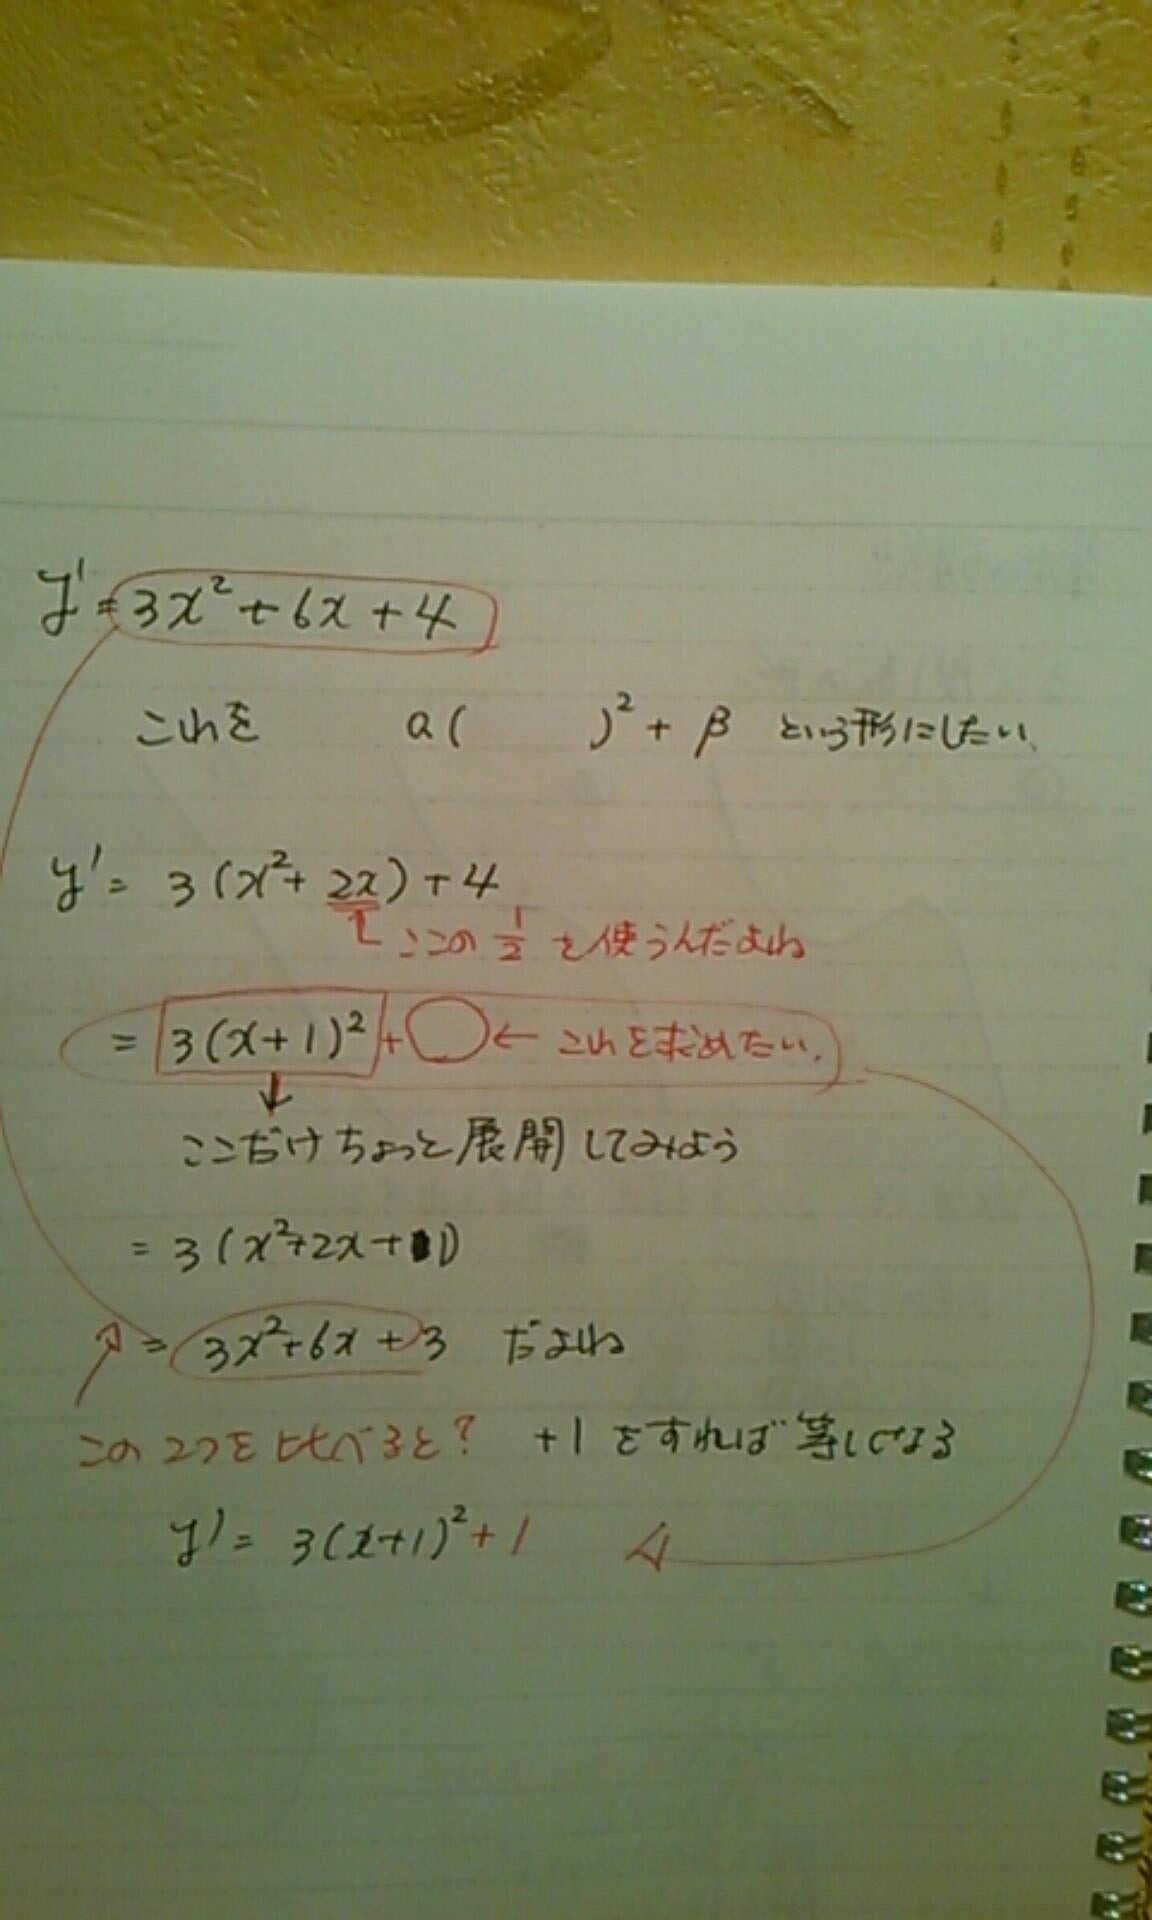 y' = 3x² + 6x + 4
これを a( )² + β という形にしたい、
y' = 3(x² + 2x) + 4
ここの 1/2 を使うんだよね
= 3(x+1)² + ○ ← これを求めたい、
ここだけちょっと展開してみよう
= 3(x²+2x+1)
= 3x²+6x+3 だよね
この2つを比べると? +1をすれば等しくなる
y' = 3(x+1)² + 1